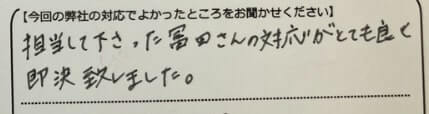 【今回の弊社の対応でよかったところをお聞かせください】
担当して下さった冨田さんの対応がとても良く
即決致しました。